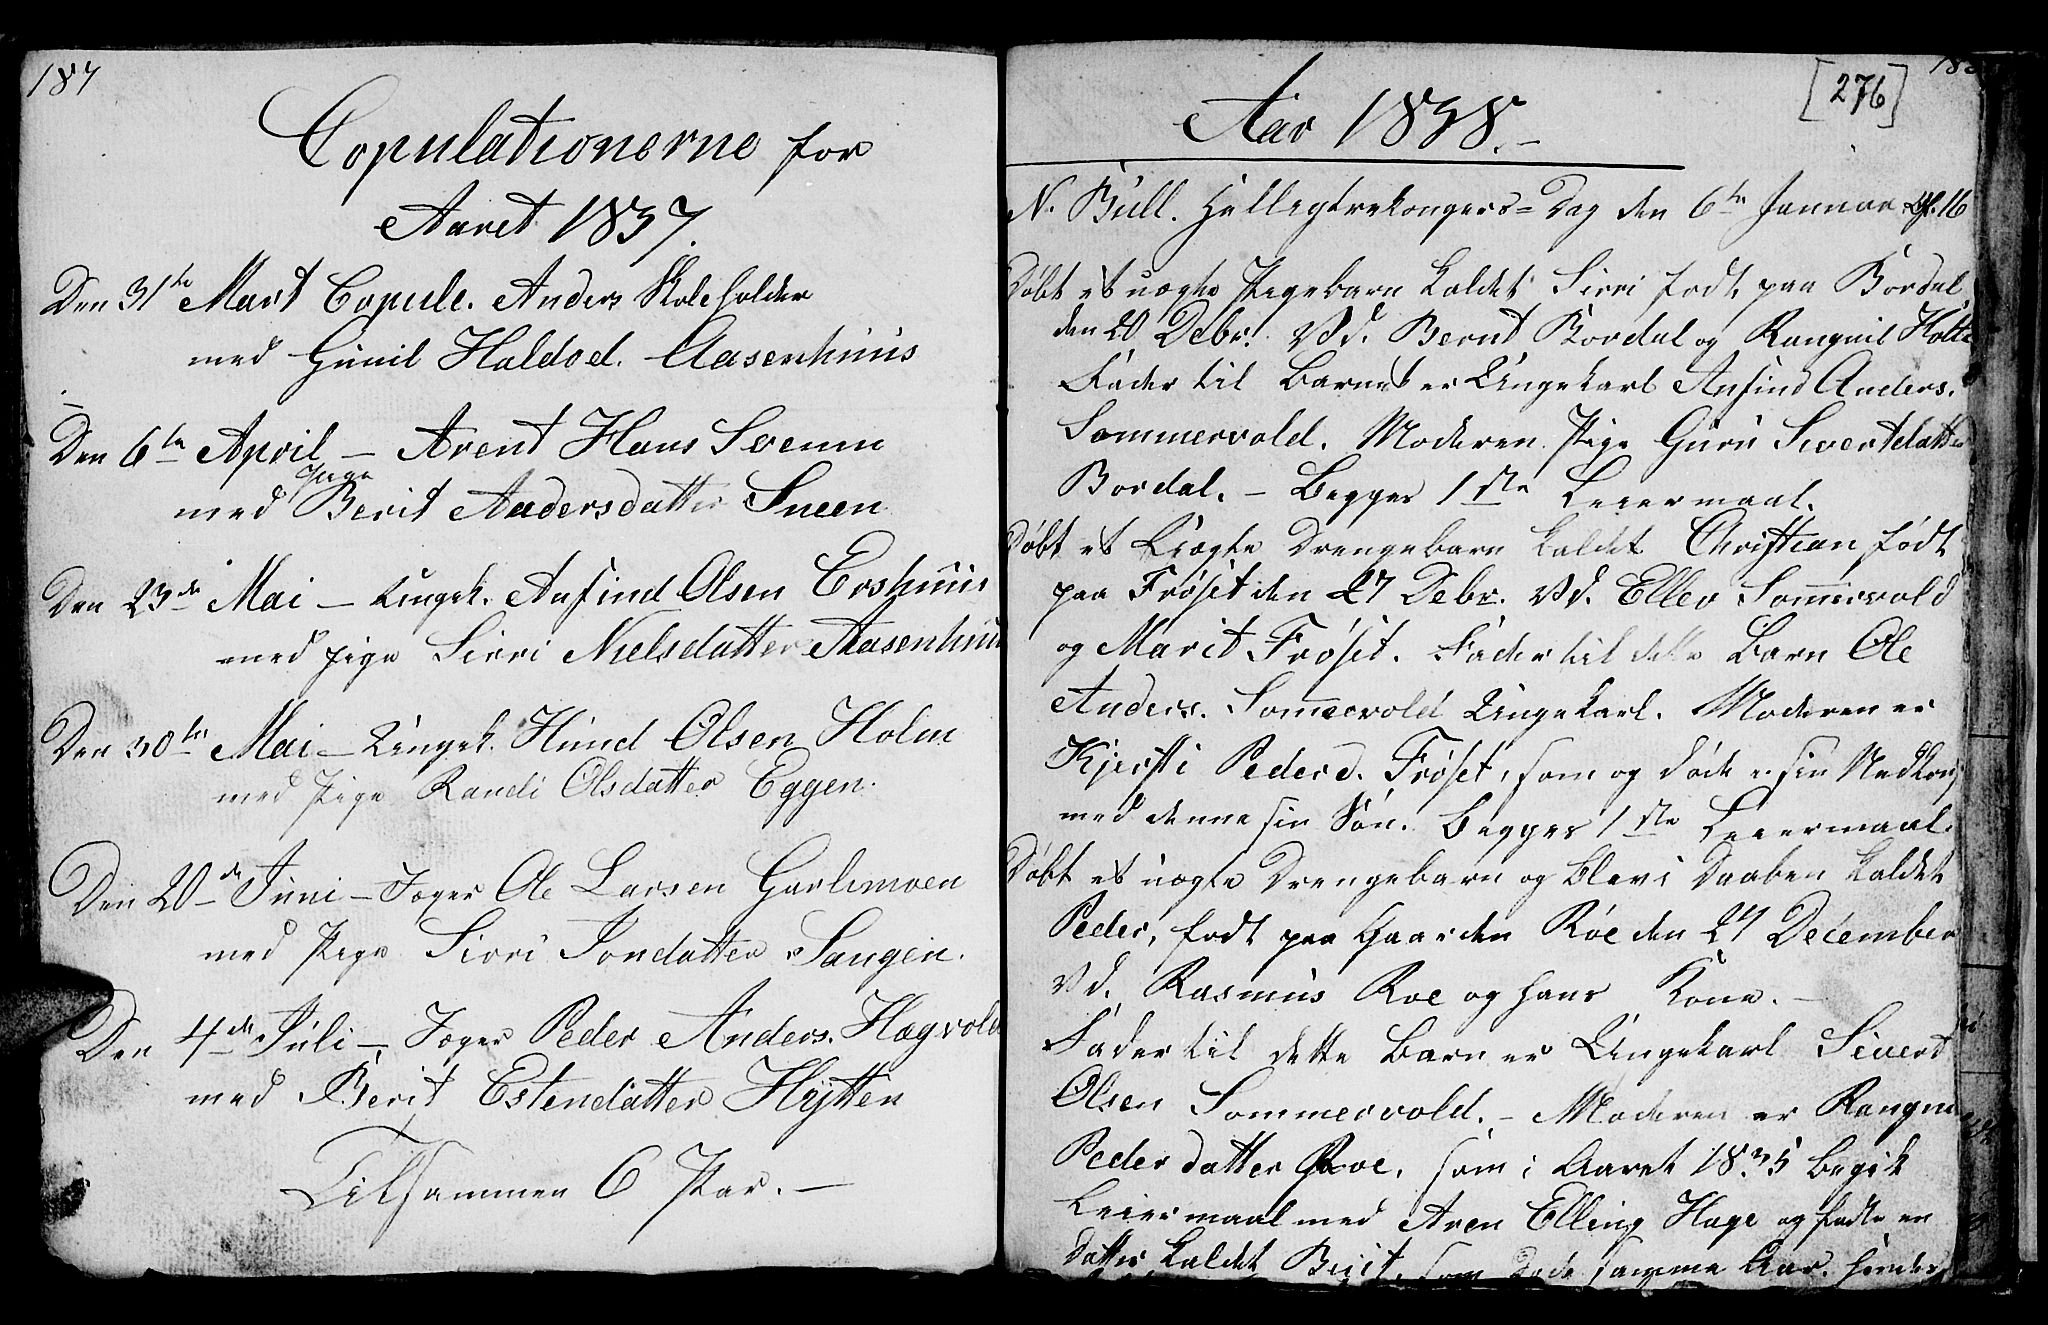 187
Copulationerne for
Aaret 1837.
Den 31te Mart Copule. Anders Skoleholder
med Gunil Haldod. Aasenhuus
Den 6te April – Arent Hans Svenn
Pige
med Berit Andersdatter Sneen
Den 23de Mai – Ungk. Anfind Olsen Ershuus
med pige Sirri Nielsdatter Aasenhuus
Den 30te Mai – Ungk. Hund Olsen Holm
med Pige Randi Olsdatter Eggen.
Den 20de Juni – Jæger Ole Larsen Garlimoen
med Pige Sirri Jondatter Saugen.
Den 4de Juli –, Jæger Peder Anders. Hægvold
med Berit Estendatter Hÿtten
Tilsammen 6 Par. –
[276]
Aar 1838. –
N. Bull. Helligtrekongers=Dag den 6te Januar 16
Døbt et uægte Pigebarn kaldet Sirri født paa Bordal
den 20 Debr. Vd. Bernt Bordal og Rangnil Holte
Fader til Barnet er Ungekarl Anfind Anders.
Sommervold. Moderen Pige Guru Sivertdatter
Bordal. – Begges 1ste Leiermaal.
Døbt et Uægte Drengebarn kaldet Christian, født
paa Frøset den 27 Debr. Vd. Eller Sommervold
og Marit Frøset. Fader til dette Barn Ole
Anders. Sommervold Ungekarl. Moderen er
Kjersti Pederd. Frøset, som og døde i sin Nedkomst
med denne sin Søn. Begges 1ste Leiermaal.
Døbt et uægte Drengebarn og blev i Daaben kaldet
Peder, født paa Gaarden Roe den 27 December
Vd. Rasmus Roe og hans Kone. –
Fader til dette Barn er Ungekarl Sivert
Olsen Sommervold. – Moderen er Rangnil
Peder datter Roe, som i Aaret 1835 begik
Leiermaal med Aren Elling Hage og fødte en
Datter kaldet Berit, som døde samme Aar.